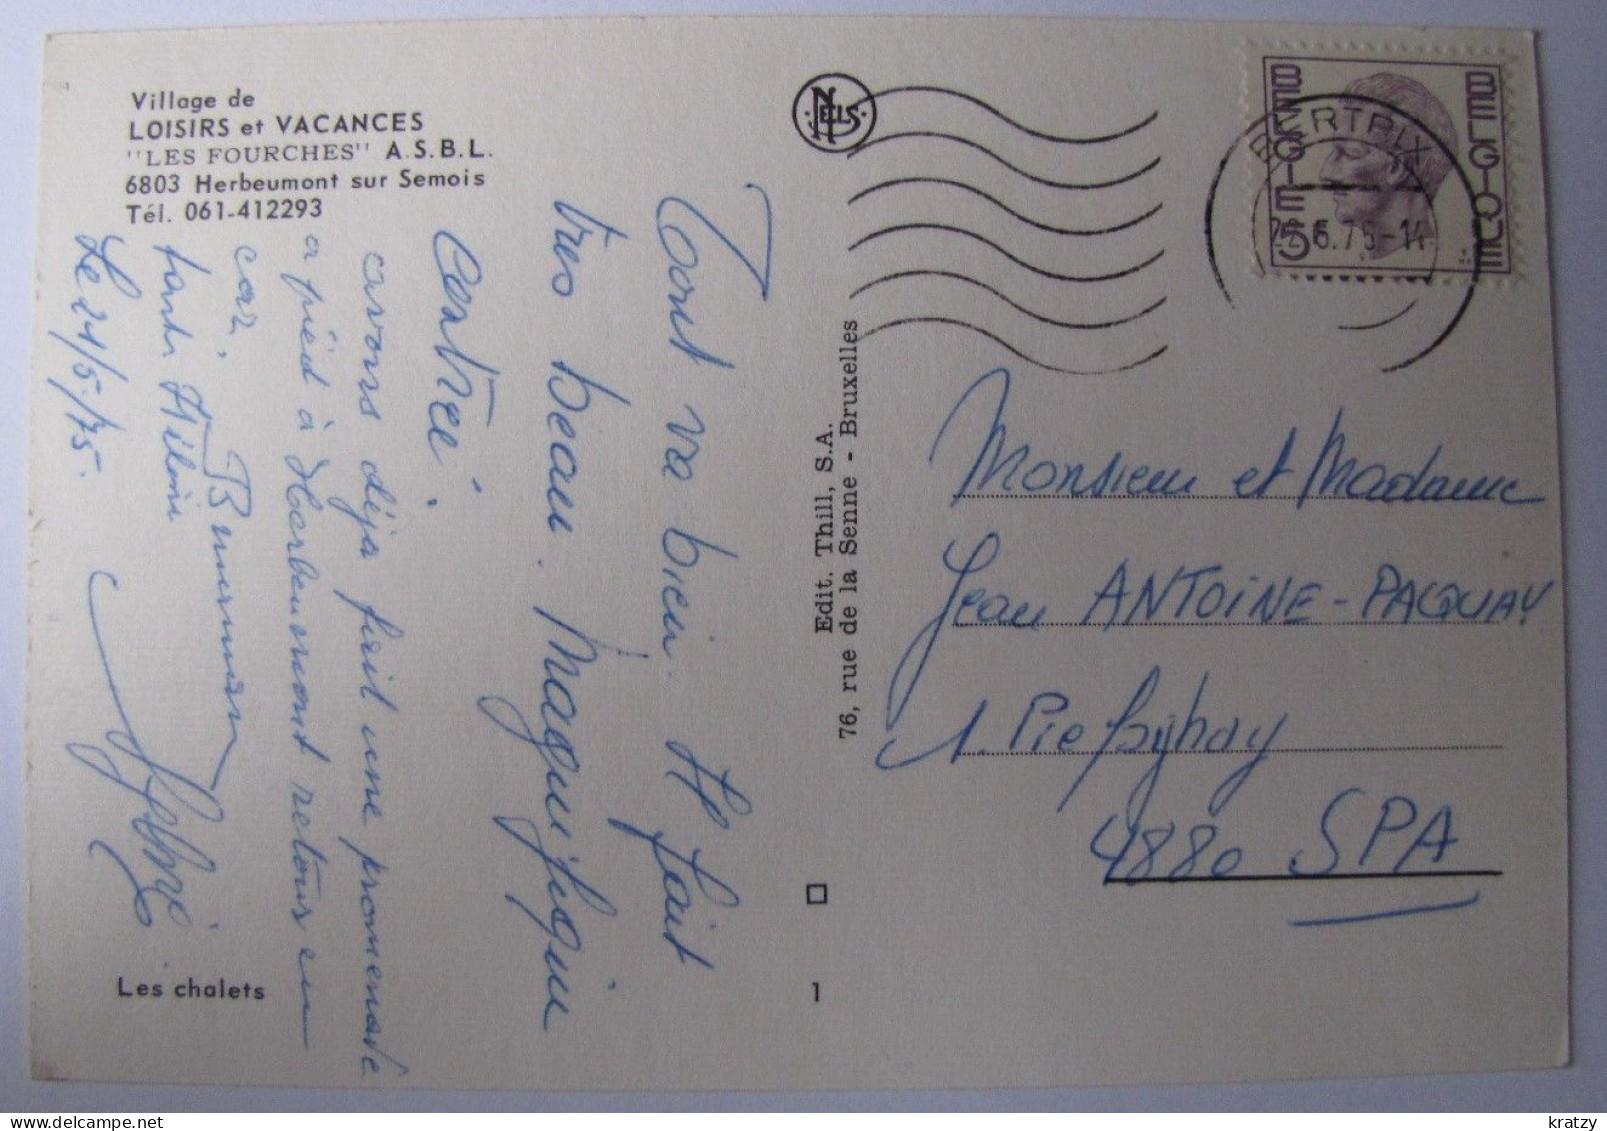 Village de
LOISIRS et VACANCES
"LES FOURCHES" A.S.B.L.
6803 Herbeumont sur Semois
Tél. 061-412293
Tout va bien. Il fait
très beau. Magnifique
centre.
avons déjà fait une promenade
a pied à Herbeumont retour en
car.
Le 21/5/75.
Les chalets
NELS
Edit. Thill, S.A.
76, rue de la Senne - Bruxelles
1
BELGIE
BELGIQUE
5
BERTRIX
6.75-14
Monsieur et Madame
Jean ANTOINE-PACQUAY
1.
4880 SPA
kratzy